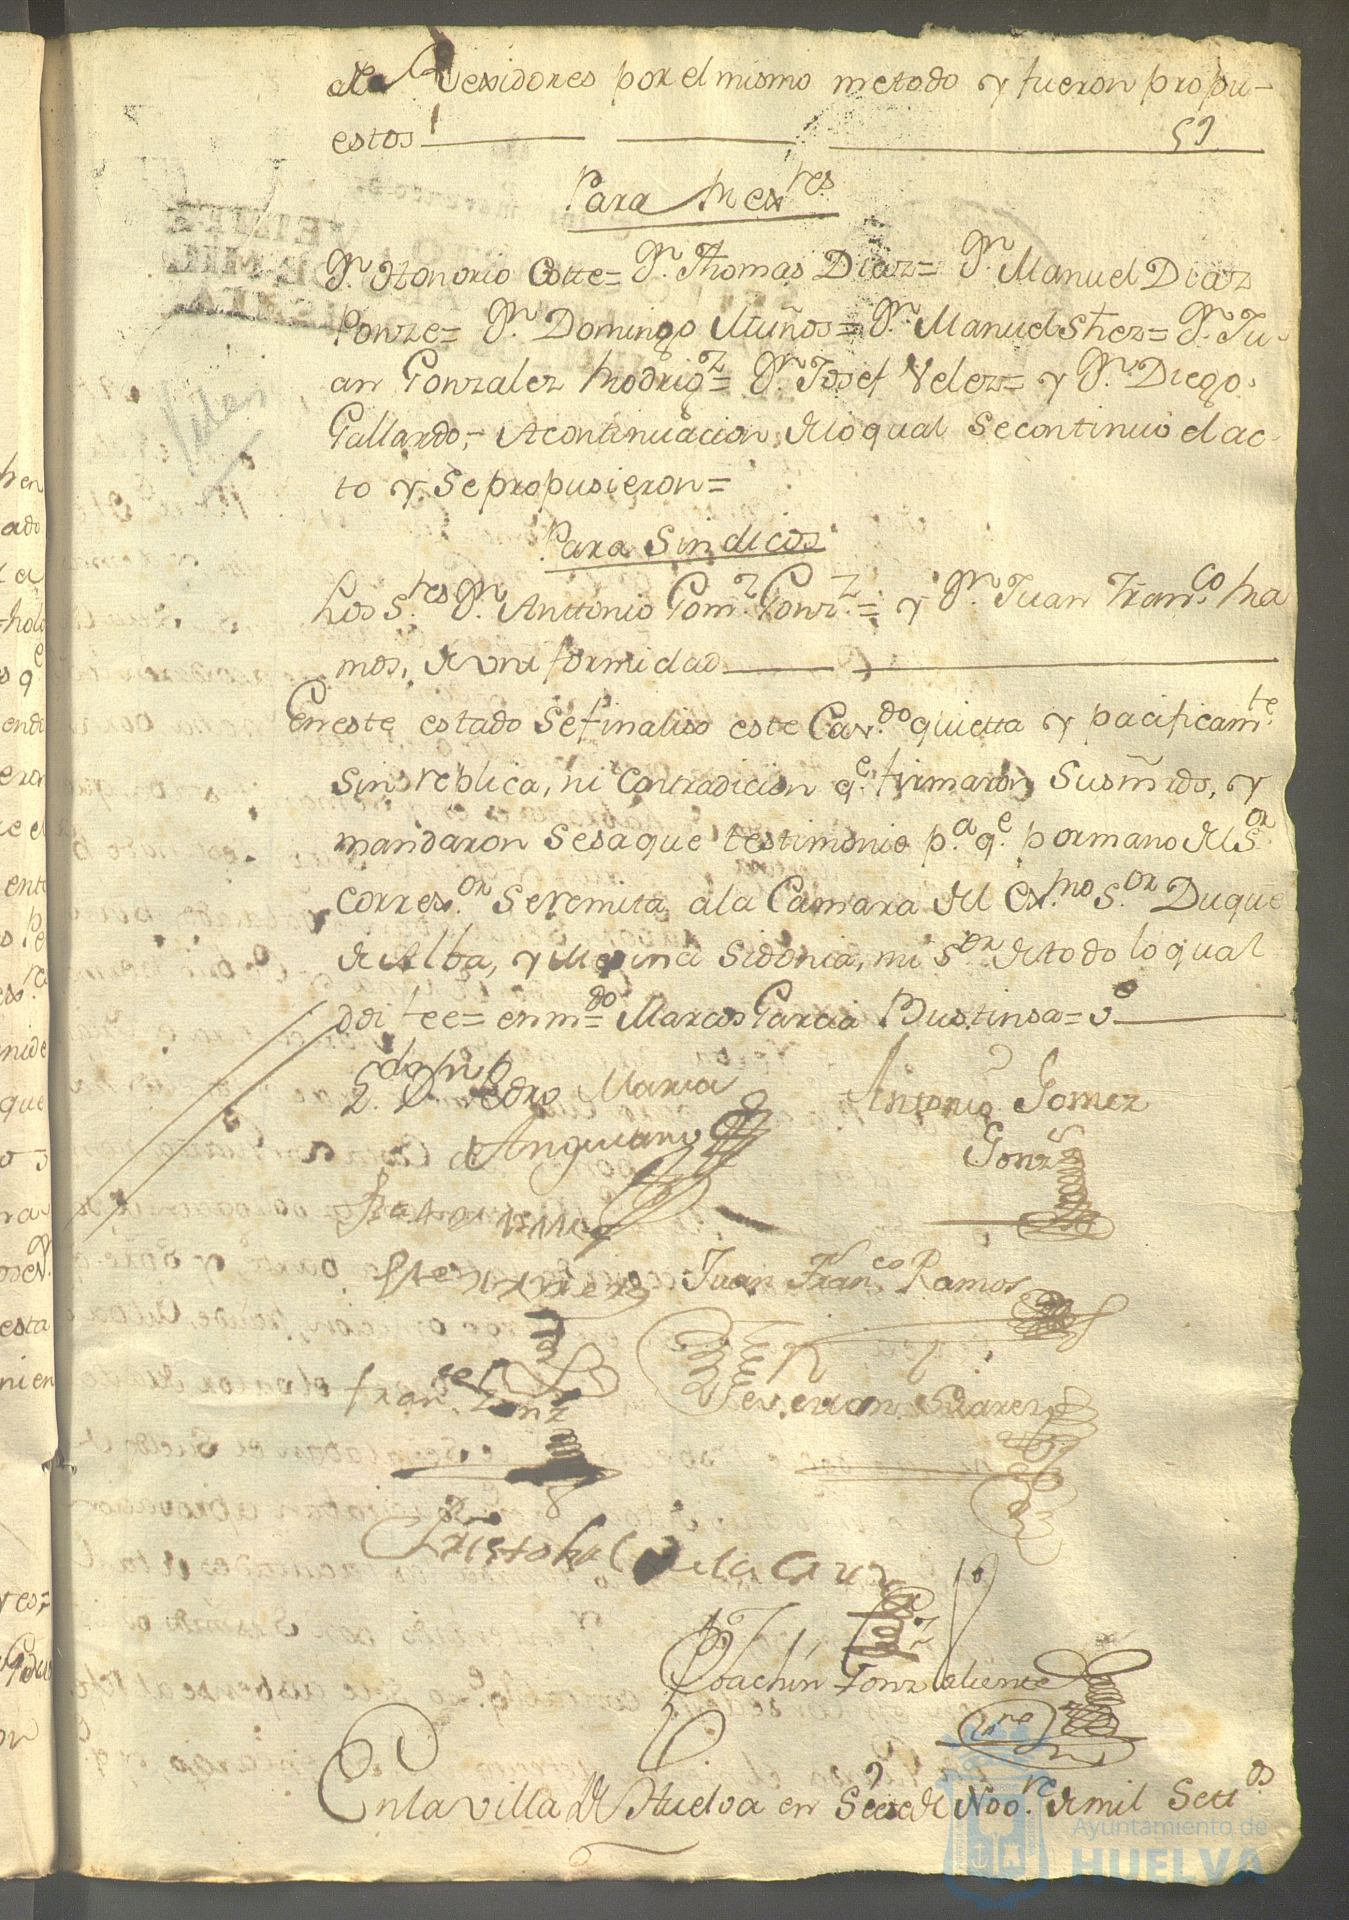 de Rexidores por el mismo metodo y fueron propu-
estos
Para Rex.res
Dn. Honorio Cotte= Dn. Thomas Diaz= Dn. Manuel Diaz
Ponze= Dn. Domingo Muños= Dn. Manuel Shez= Dn. Ju-
an Gonzalez Rodrig.z= Dn. Josef Velez= y Dn. Diego
Gallardo,- A continuacion, de lo qual se continuó el ac-
to y se propusieron=
Para Sindicos
Los S.res Dn. Anttonio Gom.z Gonz.z= y Dn. Juan Fran.co Ra
mos, de uniformidad
En este estado se finaliso este Cav.do quietta y pacificam.te
sin replica, ni contradicion q.e firmaron sus mrds, y
mandaron se saque testimonio p.a q.e por mano del S.or
corres.or se remita a la Camara del Ex.mo S.or Duque
de Alba, y Medina Sidonia, mi S.or de todo lo qual
doi fee= enm.do Marcos Garcia Bustinsa= v.e
L.do Dn Pedro Maria
de Anguiano
Antonio Gomez
Gonz.z
Bartolome
Juan Fran.co Ramos
Fran.co Gonz
Severian Suarez
Cristobal de la Cruz
Joachin Gonz Valiente
En la villa de Huelva en Siete de Nov.re de mil Sett.os
Ayuntamiento de
HUELVA